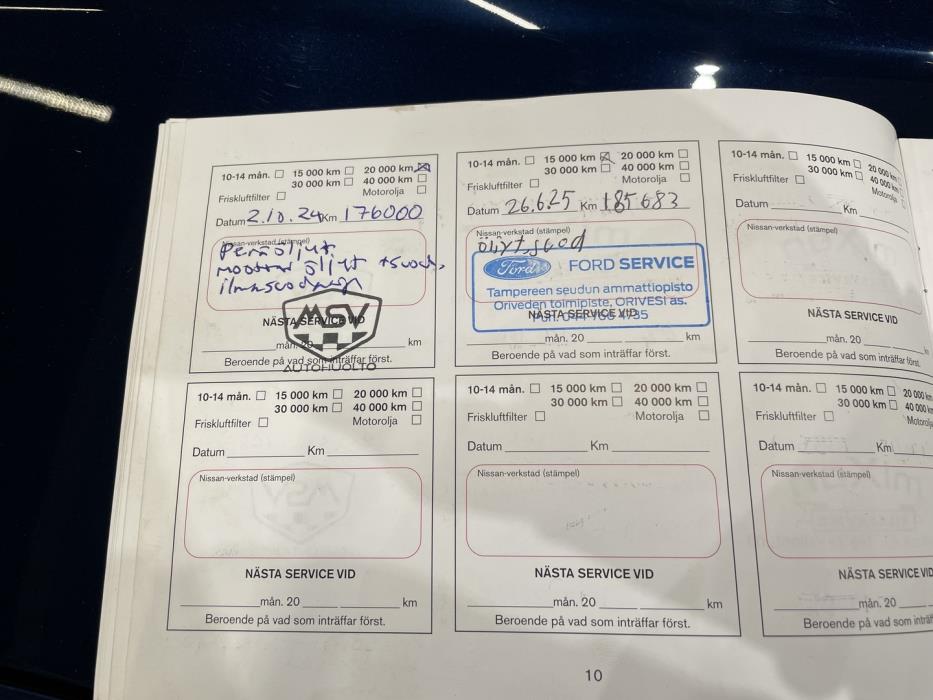 10-14 mån. 15 000 km 20 000 km
30 000 km 40 000 km
Friskluftfilter Motorolja
Datum 2.10.24 Km 176000
Nissan-verkstad (stämpel)
MSV
NÄSTA SERVICE VID
mån. 20 km
Beroende på vad som inträffar först.
AUTOHUOLTO
10-14 mån. 15 000 km 20 000 km
30 000 km 40 000 km
Friskluftfilter Motorolja
Datum 26.6.25 Km 185683
Nissan-verkstad (stämpel)
Ford FORD SERVICE
Tampereen seudun ammattiopisto
Oriveden toimipiste, ORIVESI as.
NÄSTA SERVICE VID
mån. 20 km
Beroende på vad som inträffar först.
10-14 mån. 15 000 km 20 000 km
30 000 km 40 000 km
Friskluftfilter Motorolja
Datum Km
Nissan-verkstad (stämpel)
NÄSTA SERVICE VID
mån. 20 km
Beroende på vad som inträffar först.
10-14 mån. 15 000 km 20 000 km
30 000 km 40 000 km
Friskluftfilter Motorolja
Datum Km
Nissan-verkstad (stämpel)
NÄSTA SERVICE VID
mån. 20 km
Beroende på vad som inträffar först.
10-14 mån. 15 000 km 20 000 km
30 000 km 40 000 km
Friskluftfilter Motorolja
Datum Km
Nissan-verkstad (stämpel)
NÄSTA SERVICE VID
mån. 20 km
Beroende på vad som inträffar först.
10-14 mån. 15 000 km 20 000 km
30 000 km 40 000
Friskluftfilter Motorolja
Datum Km
Nissan-verkstad (stämpel)
NÄSTA SERVICE VID
mån. 20
Beroende på vad som
10